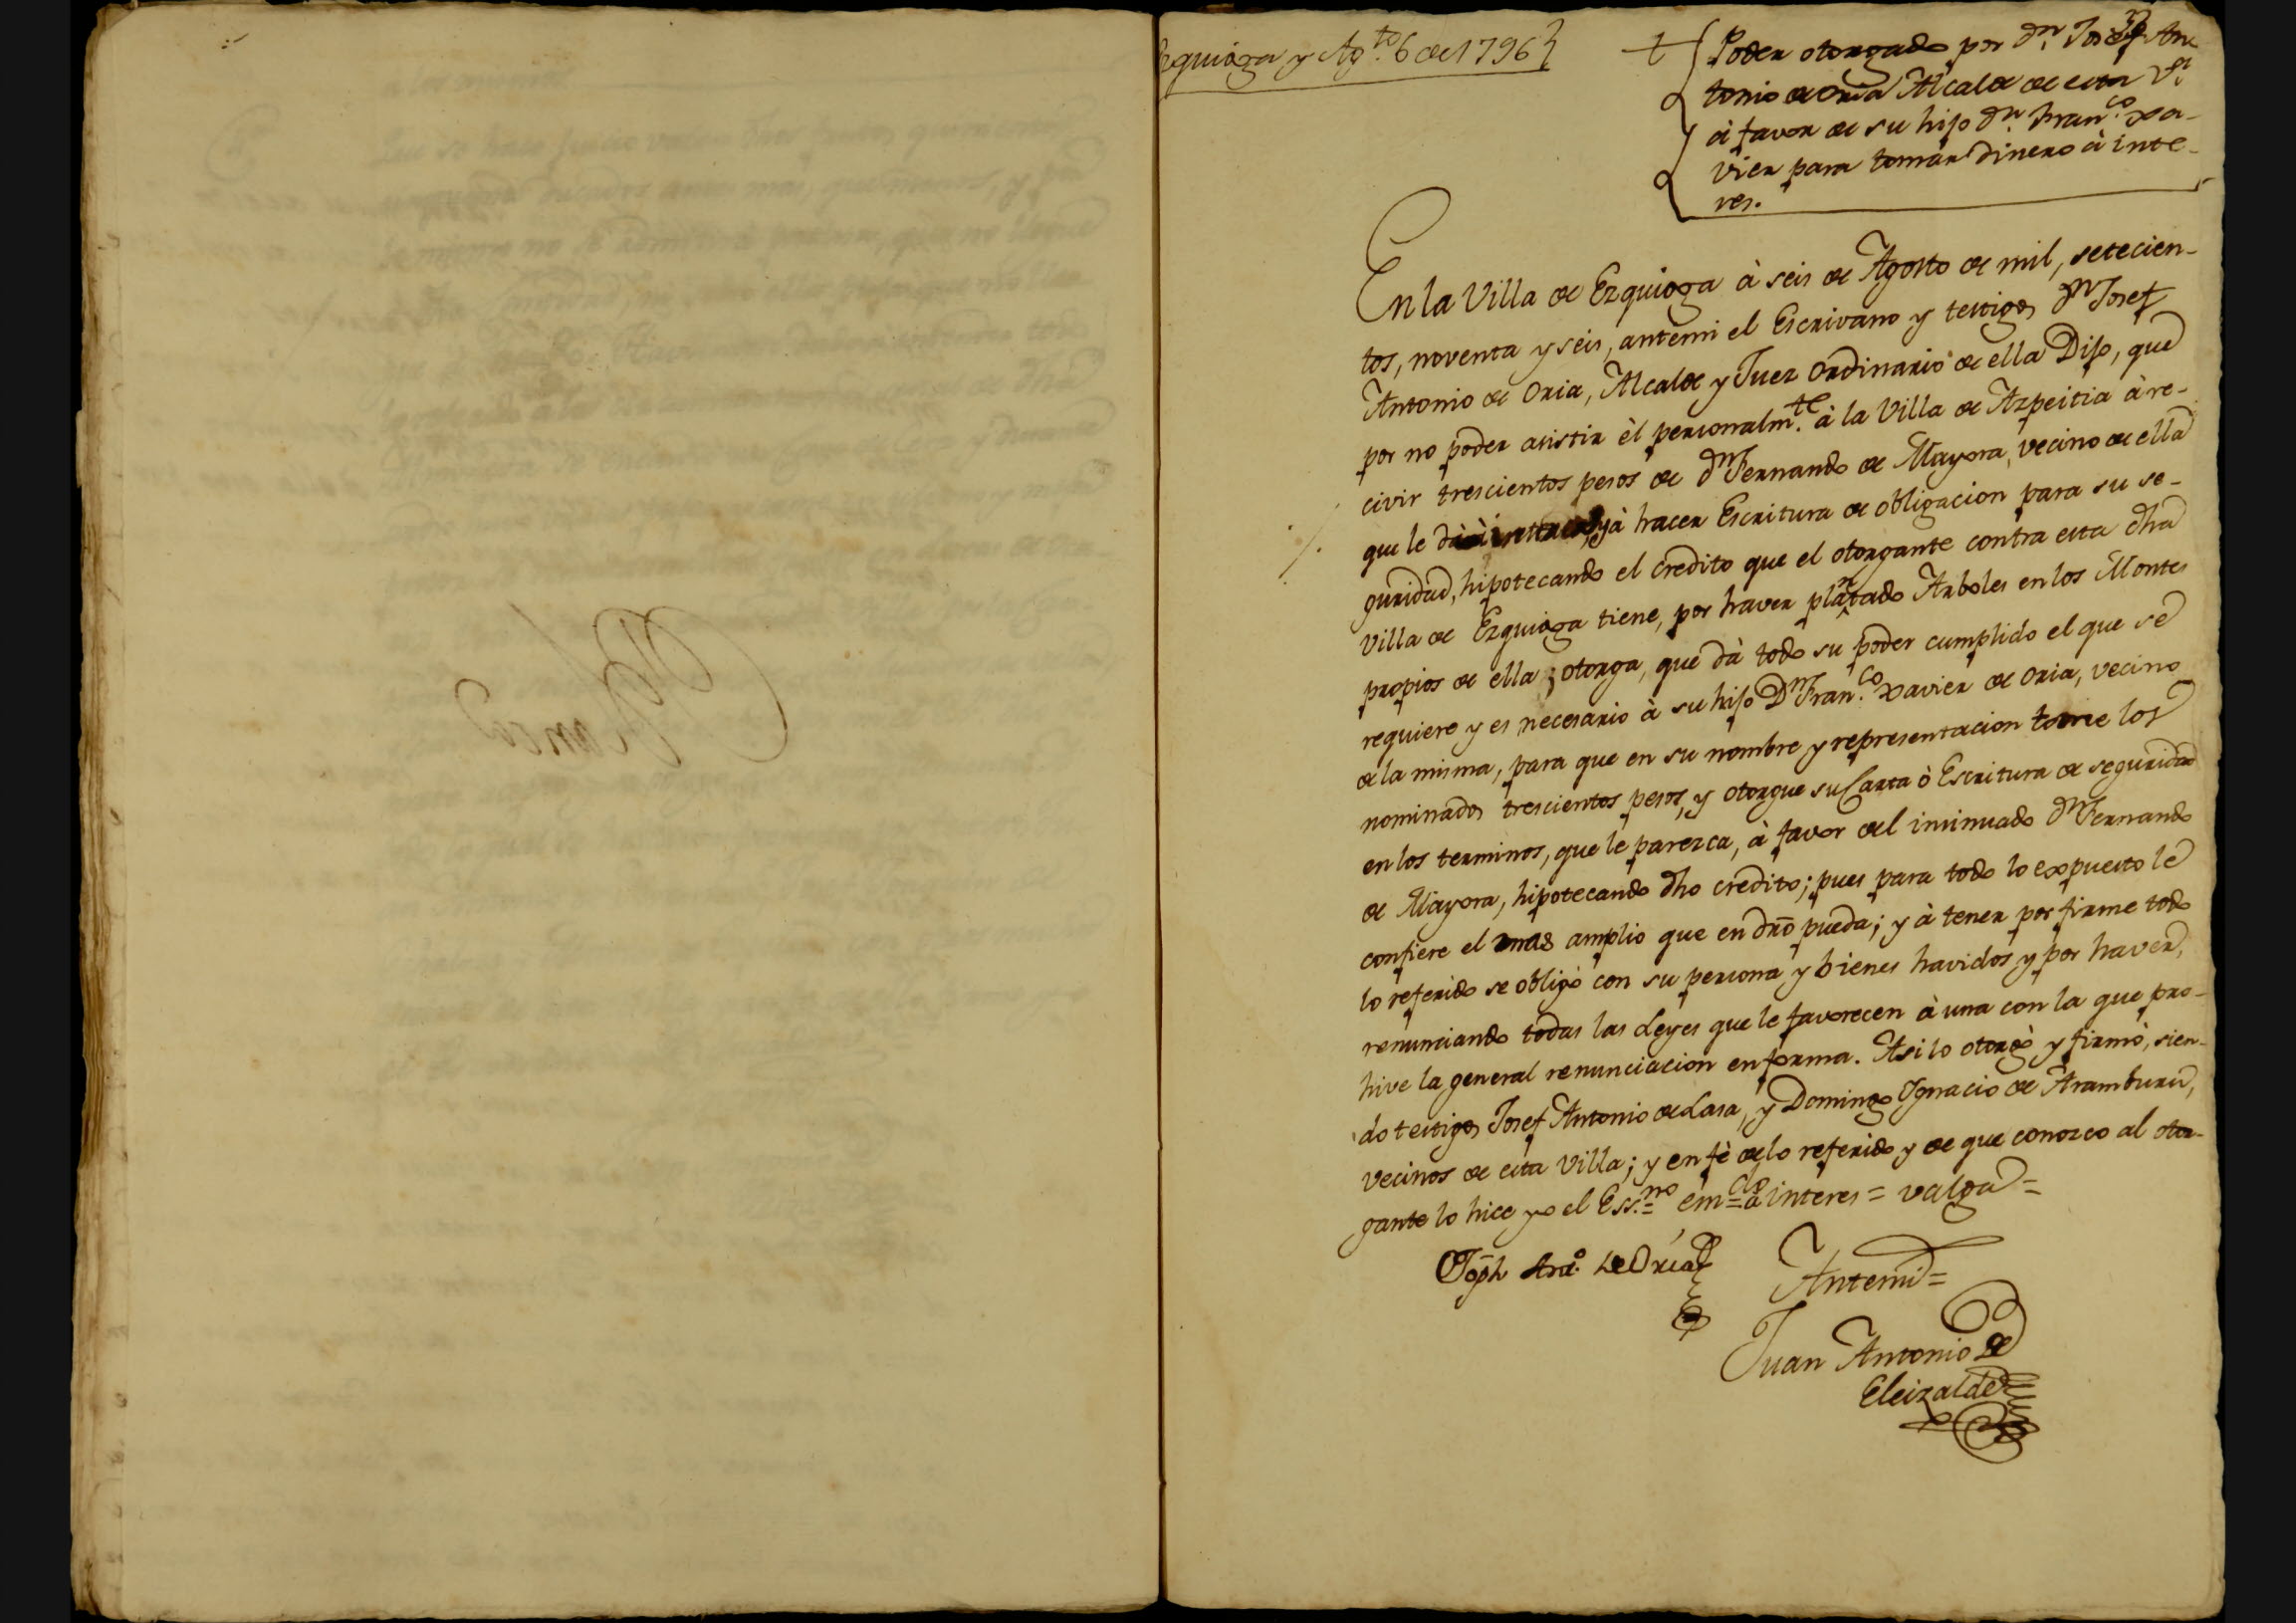 Ezquioga y Ag.to 6 de 1796
Poder otorgado por Dn. Josef An-
tonio de Oria Alcalde de esta Va.
à favor de su hijo Dn. Fran.co Xa-
vier para tomar dinero à inte-
res.
En la Villa de Ezquioga à seis de Agosto de mil, setecien-
tos, noventa y seis, antemi el Escrivano y testigos Dn. Josef
Antonio de Oria, Alcalde y Juez ordinario de ella Dijo, que
por no poder asistir èl personalm.te à la Villa de Azpeitia à re-
civir trescientos pesos de Dn. Fernando de Mayora, vecino de ella
que le dà à interes, y à hacer Escritura de obligacion para su se-
guridad, hipotecando el credito que el otorgante contra esta dha
Villa de Ezquioga tiene, por haver plantado Arboles en los Montes
propios de ella; otorga, que dà todo su poder cumplido el que se
requiere y es necesario à su hijo Dn. Fran.co Xavier de Oria, vecino
de la misma, para que en su nombre y representacion tome los
nominados trescientos pesos, y otorgue su Carta ò Escritura de seguridad
en los terminos, que le parezca, à favor del insinuado Dn. Fernando
de Mayora, hipotecando dho credito; pues para todo lo expuesto le
confiere el mas amplio que en dro pueda; y à tener por firme todo
lo referido se obligò con su persona y bienes havidos y por haver,
renunciando todas las Leyes que le favorecen à una con la que pro-
hive la general renunciacion en forma. Asi lo otorgò y firmò, sien-
do testigos Josef Antonio de Lasa, y Domingo Ignacio de Aramburu,
vecinos de esta Villa; y en fè de lo referido y de que conozco al otor-
gante lo hice yo el Ess.no = em.do = à interes = valga =
Joph Anto. de Oria
Antemi =
Juan Antonio de
Eleizalde